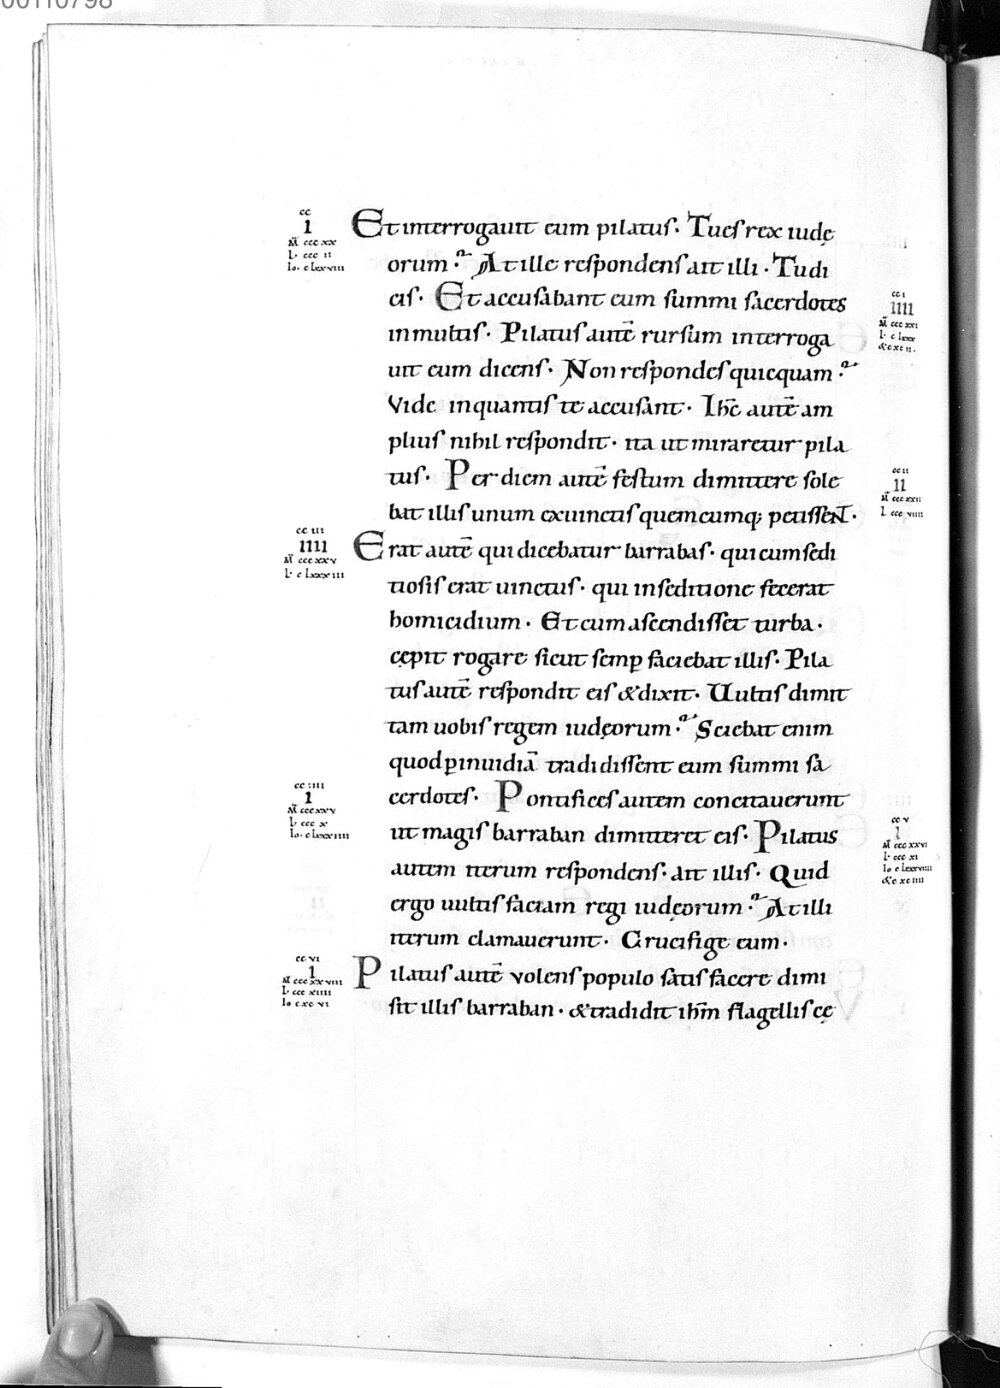 00110798
cc
I
M̄ ccc xx
L· ccc II
Io· c lxxviii
Et interrogauit eum pilatus· Tu es rex iudę
orum· At ille respondens ait illi· Tu di
cis· Et accusabant eum summi sacerdotes
in multis· Pilatus autē rursum interroga
uit eum dicens· Non respondes quicquam·
Vide in quantis te accusant· Ihc̄ autē am
plius nihil respondit· ita ut miraretur pila
tus· Per diem autē festum dimittere sole
bat illis unum ex uinctis quemcumq; petissent·
cc I
IIII
M̄ ccc xxI
L· c lxxx
cc II
II
M̄ ccc xxII
L ccc VIIII
cc III
IIII
M̄ ccc xxV
L· c lxxxIII
Erat autē qui dicebatur barrabas· qui cum sedi
tiosis erat uinctus· qui in seditione fecerat
homicidium· Et cum ascendisset turba·
cępit rogare sicut semp̱ faciebat illis· Pila
tus autē respondit eis & dixit· Uultis dimit
tam uobis regem iudęorum· Sciebat enim
quod p̱ inuidiā tradidissent eum summi sa
cerdotes· Pontifices autem concitauerunt
ut magis barraban dimitteret eis· Pilatus
autem iterum respondens· ait illis· Quid
ergo uultis faciam regi iudęorum· At illi
iterum clamauerunt· Crucifige eum·
cc IIII
I
M̄ ccc xxV
L· ccc x
Io· c lxxxIIII
cc V
I
M̄ ccc xxVI
L· ccc xI
Io c lxxxVIIII
cc VI
I
M̄ ccc xxVIII
L· ccc xIIII
Io c xc VI
Pilatus autē volens populo satisfacere dimi
sit illis barraban· & tradidit ihm̄ flagellis cę